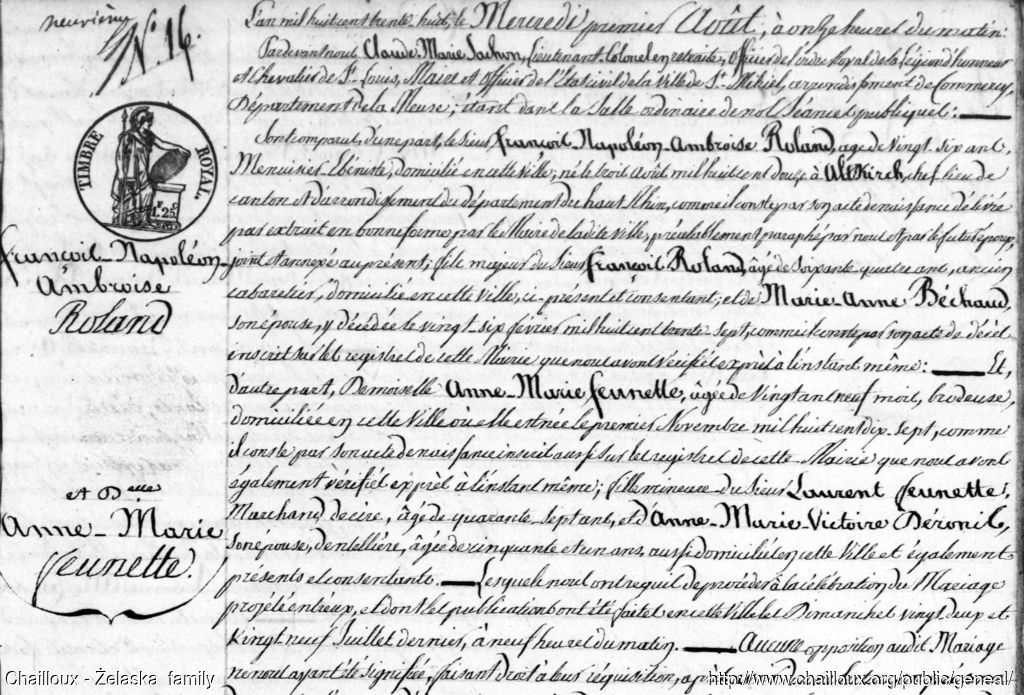 neuvième
N° 14.
TIMBRE ROYAL.
1.F 25.C
françois-Napoléon-
Ambroise
Roland
et D.elle
Anne-Marie
Jeunette.
L'an mil huit cent trente huit, le Mercredi premier Août, à onze heures du matin:
Pardevant nous Claude-Marie Sachon, Lieutenant-Colonel en retraite, Officier de l'ordre Royal de la Légion d'honneur
et Chevalier de St. Louis, Maire et officier de l'Etat civil de la Ville de St. Mihiel, arrondissement de Commercy,
Département de la Meuse; étant dans la Salle ordinaire de nos Séances publiques:
Sont comparus, d'une part, le Sieur françois Napoléon-Ambroise Roland, age de vingt-six ans,
Menuisier-Ebéniste, domicilié en cette Ville; né le trois Août mil huit cent douze à Altkirch, chef lieu de
canton et d'arrondissement du département du haut Rhin, comme il conste par son acte de naissance délivré
par extrait en bonne forme par le Maire de ladite Ville, préalablement paraphé par nous et par le futur époux,
joint et annexé au présent; fils majeur du Sieur françois Roland, âgé de soixante quatre ans, ancien
cabaretier, domicilié en cette Ville, ci-présent et consentant; et de Marie-Anne Béchaud,
son épouse, y décédée le vingt-six février mil huit cent trente-sept, comme il conste par son acte de décès
inscrit sur les registres de cette Mairie que nous avons vérifiés exprès à l'instant même: Et,
d'autre part, Demoiselle Anne-Marie Jeunette, âgée de vingt ans neuf mois, brodeuse,
domiciliée en cette Ville où elle est née le premier Novembre mil huit cent dix-sept, comme
il conste par son acte de naissance inscrit aussi sur les registres de cette Mairie que nous avons
également vérifiés exprès à l'instant même; fille mineure du Sieur Laurent Jeunette,
Marchand de cire, âgé de quarante-sept ans, et d'Anne-Marie-Victoire Déronis,
son épouse, dentellière, âgée de cinquante et un ans, aussi domiciliés en cette Ville et également
présents et consentants. Lesquels nous ont requis de procéder à la célébration du Mariage
projeté entr'eux, et dont les publications ont été faites en cette Ville les Dimanches vingt deux et
Vingt neuf Juillet dernier, à neuf heures du matin. Aucune opposition audit Mariage
ne nous ayant été signifiée, faisant droit à leur réquisition,
Chailloux - Żelaska family
http://www.chailloux.org/public/geneal/